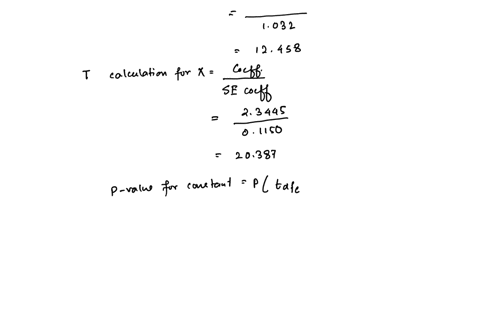 =
1.032
= 12.458
T calculation for X = Coeff.
SE coeff
= 2.3445
0.1150
= 20.387
p-value for constant = P ( tdfe